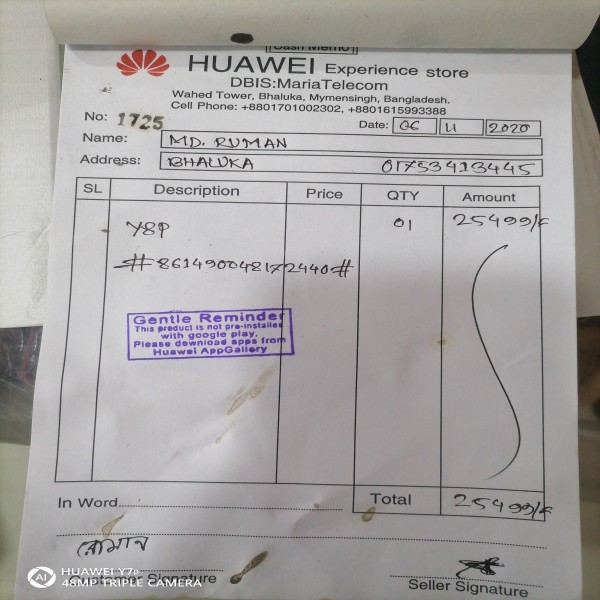 Cash Memo
HUAWEI Experience store
DBIS:MariaTelecom
Wahed Tower, Bhaluka, Mymensingh, Bangladesh.
Cell Phone: +8801701002302, +8801615993388
No: 1725
Date: 06 11 2020
Name: MD. RUMAN
Address: BHALUKA 01753413445
SL Description Price QTY Amount
Y8P 01 25499/=
#861490048172440#
Gentle Reminder
This product is not pre-installed
with google play.
Please download apps from
Huawei AppGallery
In Word
Total 25499/=
রোমান
Customer Signature
Seller Signature
AI
HUAWEI Y7p
48MP TRIPLE CAMERA